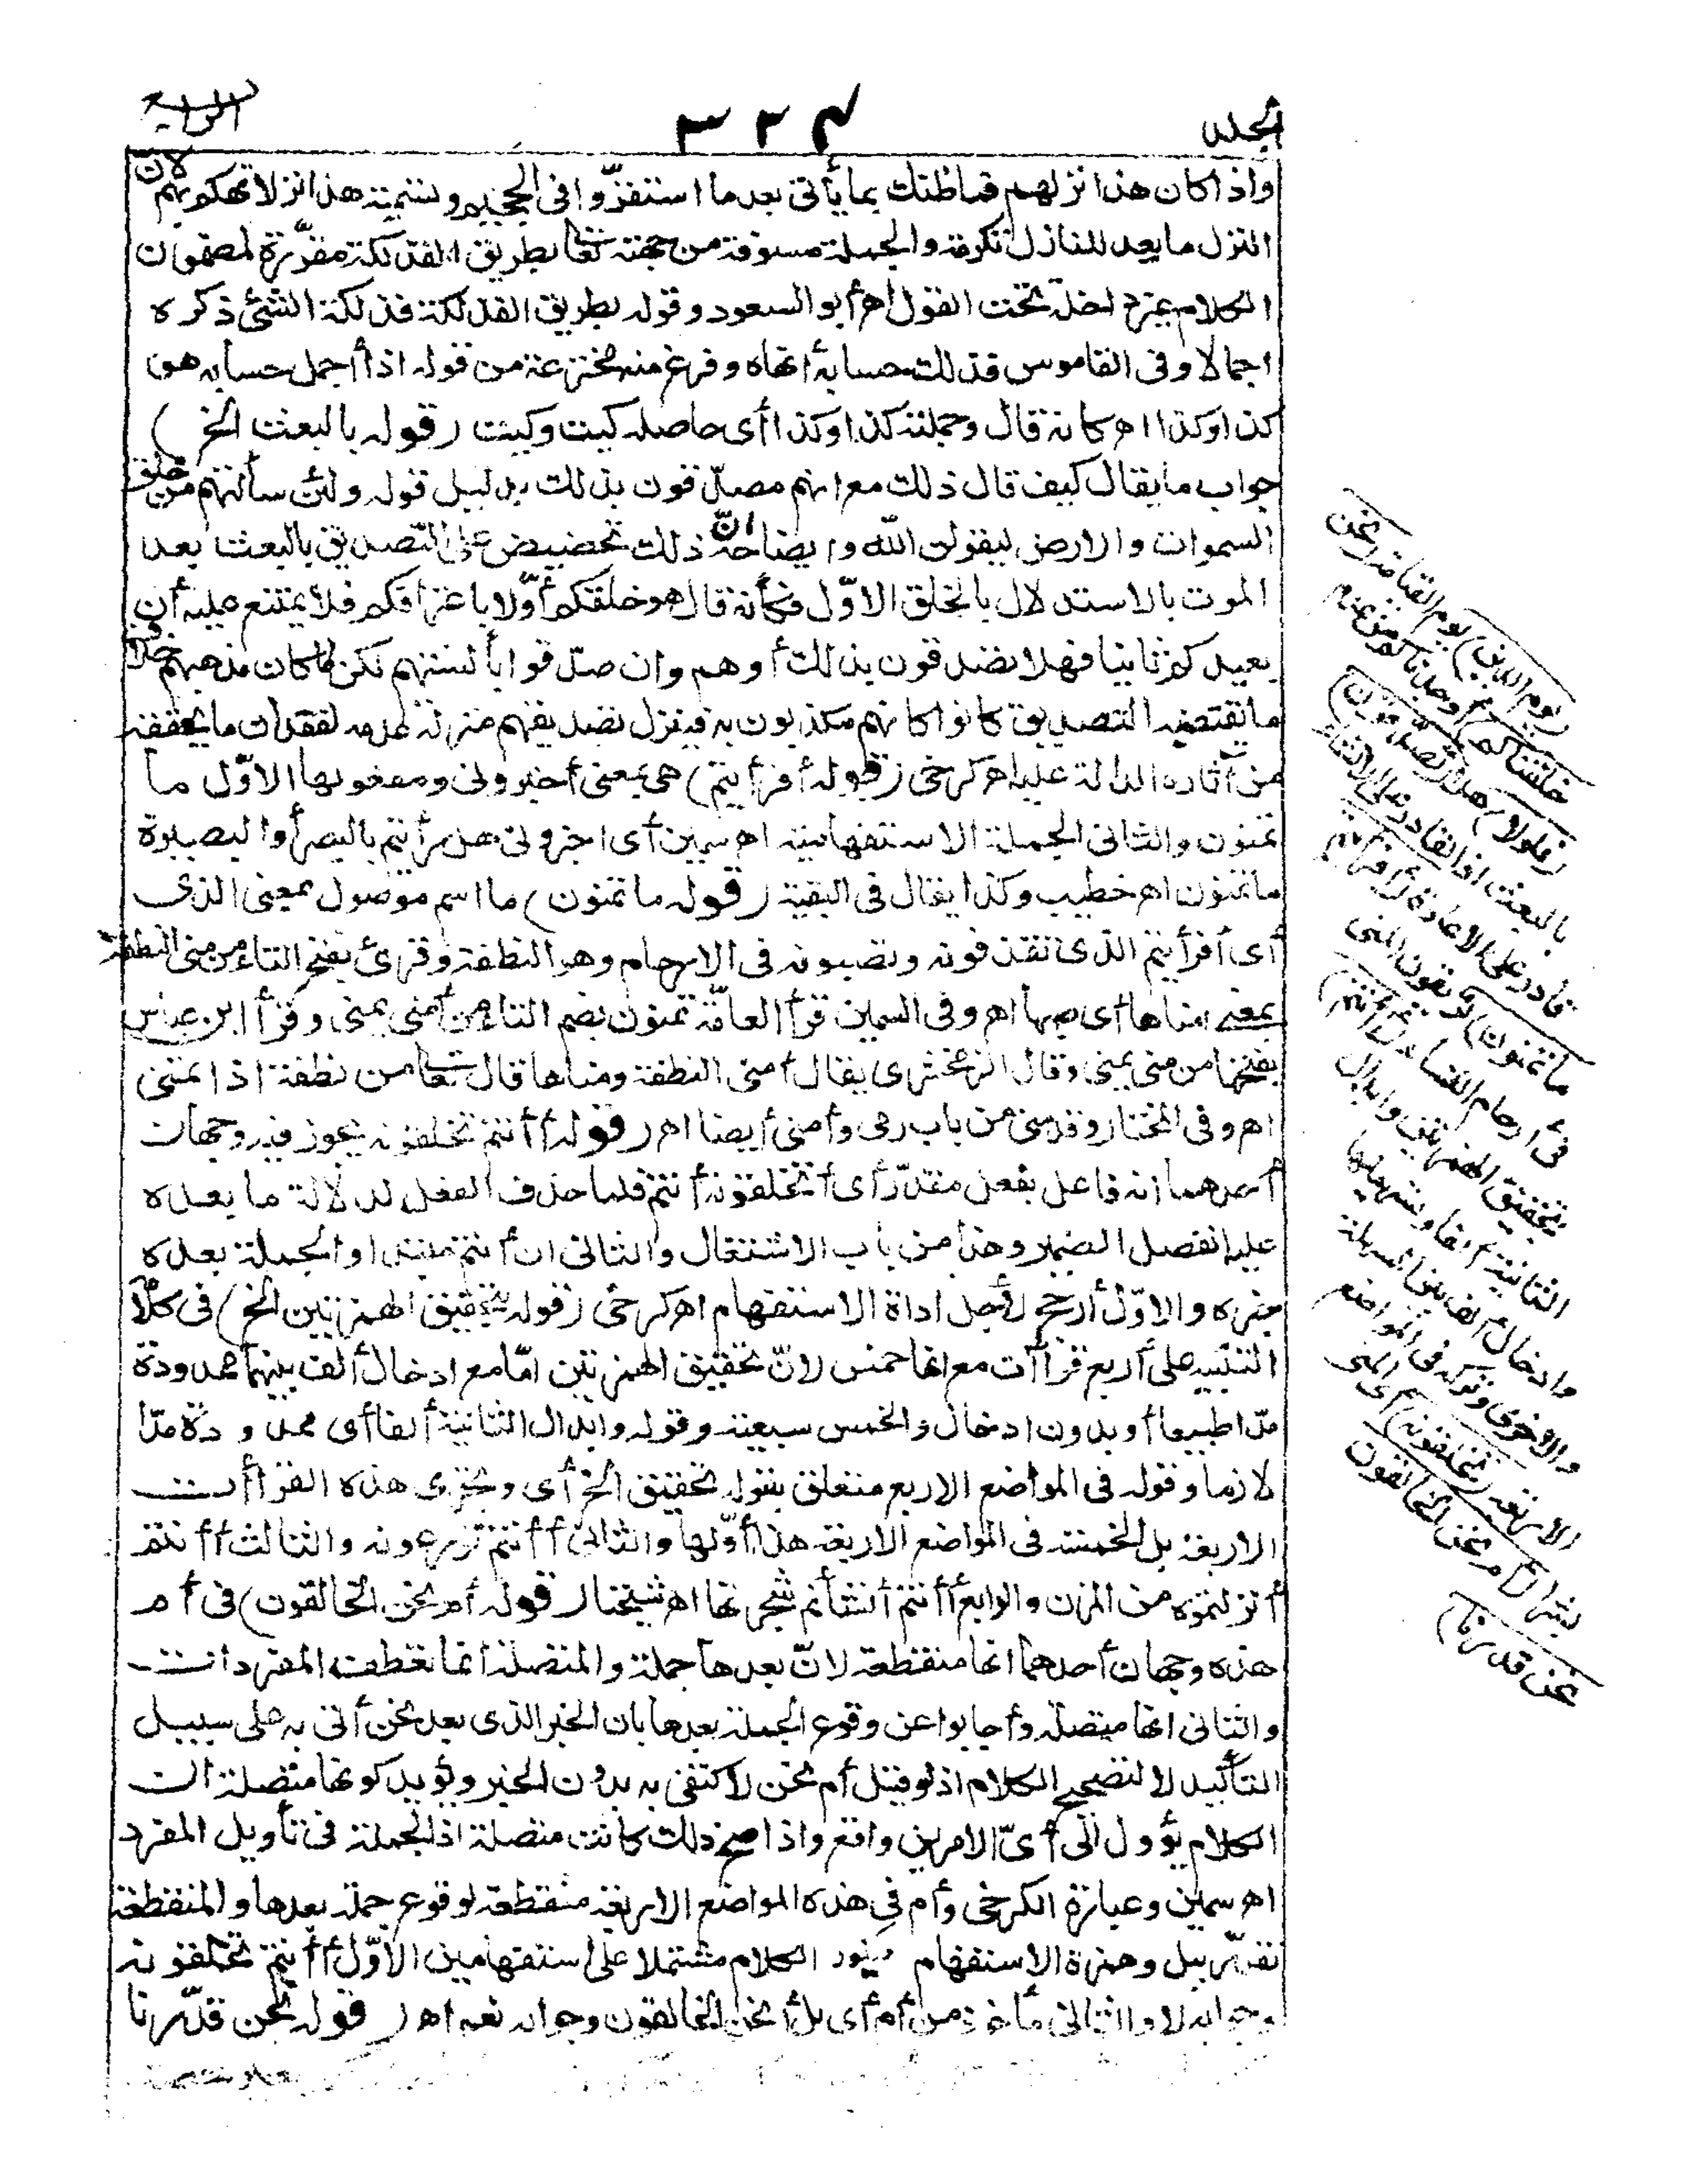 الجلد
٣٢٤
الرابع
واذا كان هذا نزلهم فما ظنك بما يأتى بعد ما استقرّوا فى الجحيم وتسميته هذا نزلا تهكم بهم لان
النزل ما يعد للنازل تكرمة والجملة مسوقة من جهته تعالى بطريق الفذلكة مقرّرة لمضمون
الكلام غير داخلة تحت القول اهـ أبو السعود وقوله بطريق الفذلكة فذلكة الشئ ذكره
اجمالا وفى القاموس فذلك حسابه أنهاه وفرغ منه مخترعة من قوله اذا أجمل حسابه هو
كذا وكذا اهـ كانه قال وجملته كذا وكذا أى حاصله كيت وكيت (قوله بالبعث الخ)
جواب ما يقال كيف قال ذلك مع انهم مصدّقون بذلك بدليل قوله ولئن سألتهم من خلق
السموات والارض ليقولن الله وايضاحه أنّ ذلك تحضيض على التصديق بالبعث بعد
الموت بالاستدلال بالخلق الاوّل فكأنه قال هو خلقكم أوّلا باعترافكم فلا يمتنع عليه أن
يعيدكم ثانيا فهلا تصدقون بذلك أو هم وان صدّقوا بألسنتهم لكن لما كان مذهبهم خلاف
ما يقتضيه التصديق كانوا كانهم مكذبون به فينزل تصديقهم منزلة عدمه لفقدان ما يحققه
من آثاره الدالة عليه اهـ كرخى (قوله أفرأيتم) هى بمعنى أخبرونى ومفعولها الاوّل ما
تمنون والثانى الجملة الاستفهامية اهـ سمين أى اخبرونى هل رأيتم بالبصر أو البصيرة
ما تمنون اهـ خطيب وكذا يقال فى البقية (قوله ما تمنون) ما اسم موصول بمعنى الذى
أى أفرأيتم الذى تقذفونه وتصبونه فى الارحام وهو النطفة وقرئ بفتح التاء من منى النطفة
بمعنى امناها أى صبها اهـ وفى السمين قرأ العامّة تمنون بضم التاء من أمنى يمنى وقرأ ابن عباس
بفتحها من منى يمنى وقال الزمخشرى يقال أمنى النطفة ومناها قال تعالى من نطفة اذا تمنى
اهـ وفى المختار وقد منى من باب رمى وأمنى أيضا اهـ (قوله أأنتم تخلقونه) يجوز فيه وجهان
أحدهما انه فاعل بفعل مقدّر أى أتخلقونه أنتم فلما حذف الفعل لدلالة ما بعده
عليه انفصل الضمير وهذا من باب الاشتغال والثانى ان أنتم مبتدا والجملة بعده
خبره والاوّل أرجح لأجل اداة الاستفهام اهـ كرخى (قوله بتحقيق الهمزتين الخ) فى كلامه
التنبيه على أربع قراآت مع انها خمس لانّ تحقيق الهمزتين امّا مع ادخال ألف بينهما ممدودة
مدّا طبيعا أو بدون ادخال والخمس سبعية وقوله وابدال الثانية ألفا أى ممدودة مدّا
لازما وقوله فى المواضع الاربع متعلق بقوله بتحقيق الخ أى وتجرى هذه القراآت
الاربعة بل الخمسة فى المواضع الاربعة هذا أوّلها والثانى أأنتم تزرعونه والثالث أأنتم
أنزلتموه من المزن والرابع أأنتم أنشأتم شجرتها اهـ شيخنا (قوله أم نحن الخالقون) فى أم
هذه وجهان أحدهما انها منقطعة لانّ بعدها جملة والمتصلة انما تعطف المفردات
والثانى انها متصلة وأجابوا عن وقوع الجملة بعدها بان الخبر الذى بعد نحن أتى به على سبيل
التأكيد لا لتصحيح الكلام اذ لو قيل أم نحن لاكتفى به بدون الخبر ويؤيد كونها متصلة ان
الكلام يؤول الى أىّ الامرين واقع واذا صح ذلك كانت متصلة اذ الجملة فى تأويل المفرد
اهـ سمين وعبارة الكرخى وأم فى هذه المواضع الاربعة منقطعة لوقوع جملة بعدها والمنقطعة
تقدّر ببل وهمزة الاستفهام الكلام مشتملا على استفهامين الاوّل أأنتم تخلقونه
وجوابه لا والثانى مأخوذ من أم أى بل أنحن الخالقون وجوابه نعم اهـ (قوله نحن قدّرنا
(يوم الدين) يوم القيامة (نحن
خلقناكم) أوجدناكم من عدم
(فلولا) هلا (تصدّقون)
بالبعث اذ القادر على الانشاء
قادر على الاعادة (أفرأيتم
ما تمنون) تريقون المنى
فى أرحام النساء (أأنتم)
بتحقيق الهمزتين وابدال
الثانية ألفا وتسهيلها
وادخال ألف بين المسهلة
والاخرى وتركه فى المواضع
الاربعة (تخلقونه) أى المنى
بشرا (أم نحن الخالقون
نحن قدرنا)